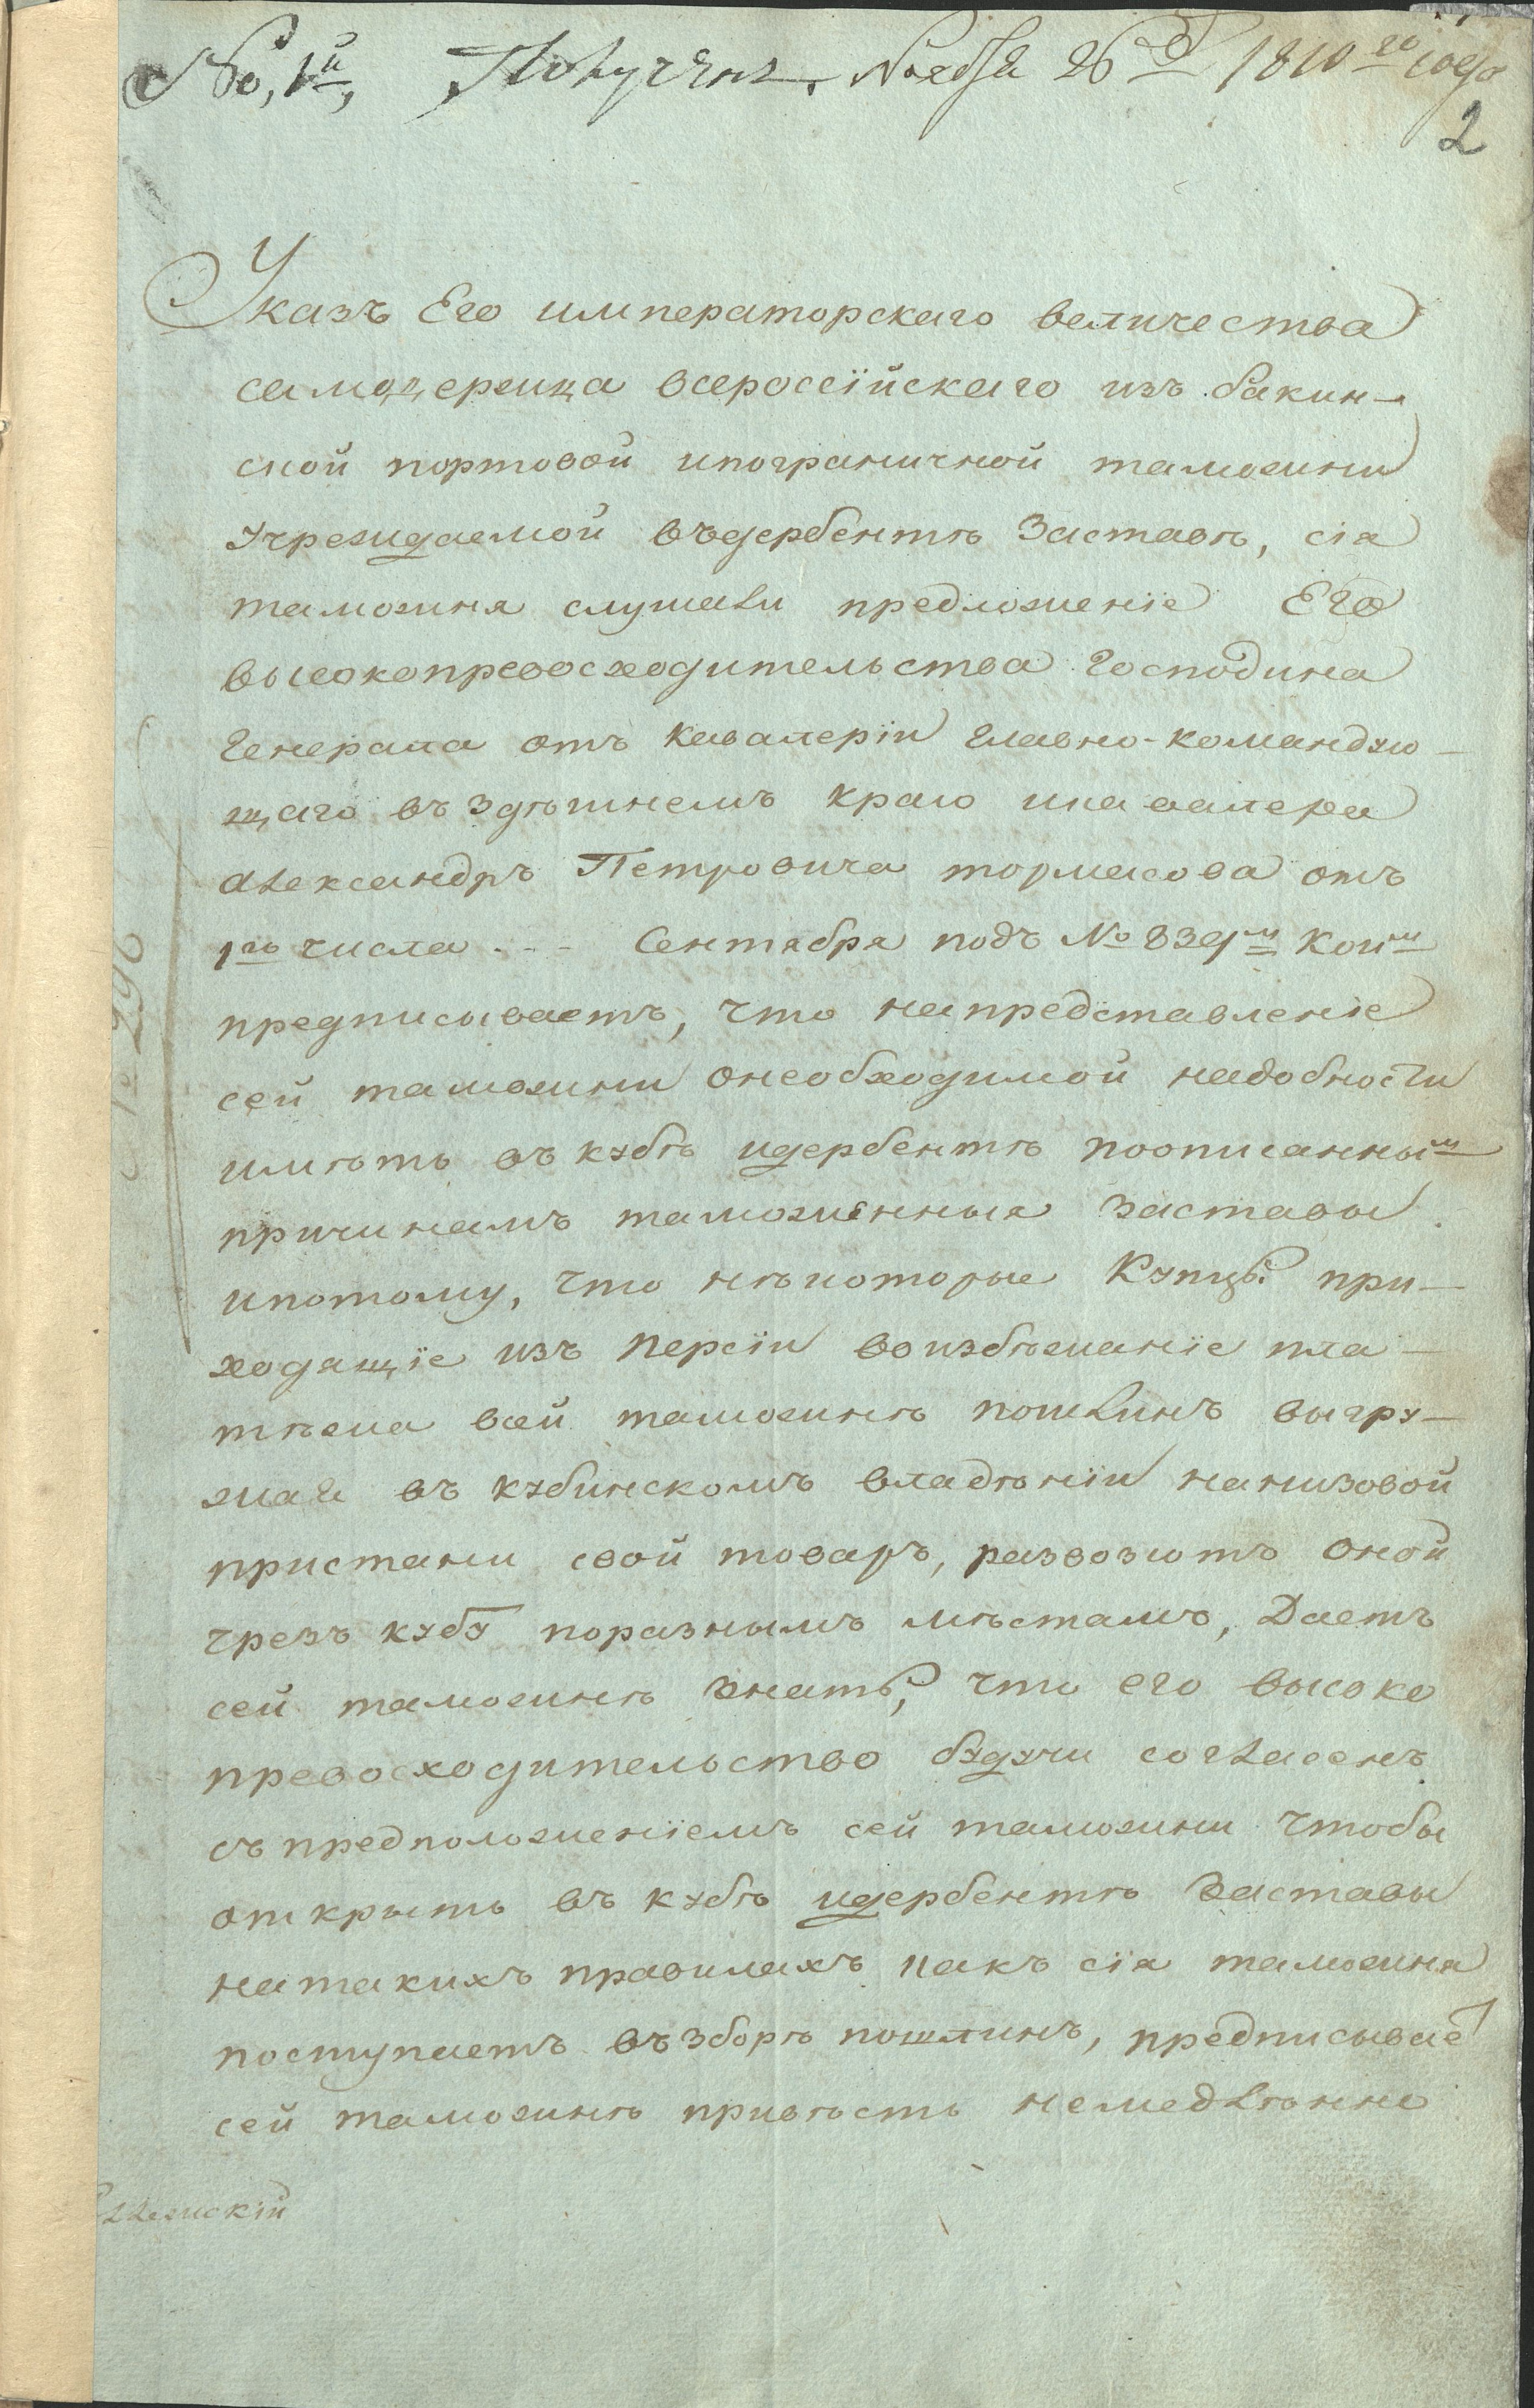 No, 1й, Полученъ, Ноября 26го 1810го года
2
Указъ Его императорскаго величества
самодержца всероссїйскаго изъ бакин-
ской портовой ипограничной таможни
учреждаемой въдербентѣ Заставѣ, сіа
таможня слушали предложенїе Его
высокопревосходительства Господина
Генерала отъ кавалерїи Главно-командую-
щаго въ здѣшнемъ краю икавалера
александръ Петровича тормасова отъ
1го числа - - - Сентября подъ № 839м коим
предписываетъ, что напредставленїе
сей таможни онеобходимой надобности
имѣть въ кубѣ идербентѣ поописанным
причинамъ таможенныя заставы
ипотому, что нѣкоторые Купцы при-
ходящїе изъ персїи воизбѣжанїе пла-
тѣжа всей таможнѣ пошлинъ выгру-
жая въ кубинскомъ владѣнїи нанизовой
пристани свой товаръ, развозютъ оной
чрезъ кубу поразнымъ мѣстамъ, Даетъ
сей таможнѣ знать, что его высоко
превосходительство будучи согласенъ
съ предположенїемъ сей таможни чтобы
открыть въ кубѣ идербентѣ заставы
натакихъ правилахъ какъ сїя таможня
поступаетъ възборѣ пошлинъ, предписывае
сей таможнѣ привѣсть немедлѣнно
№ 296